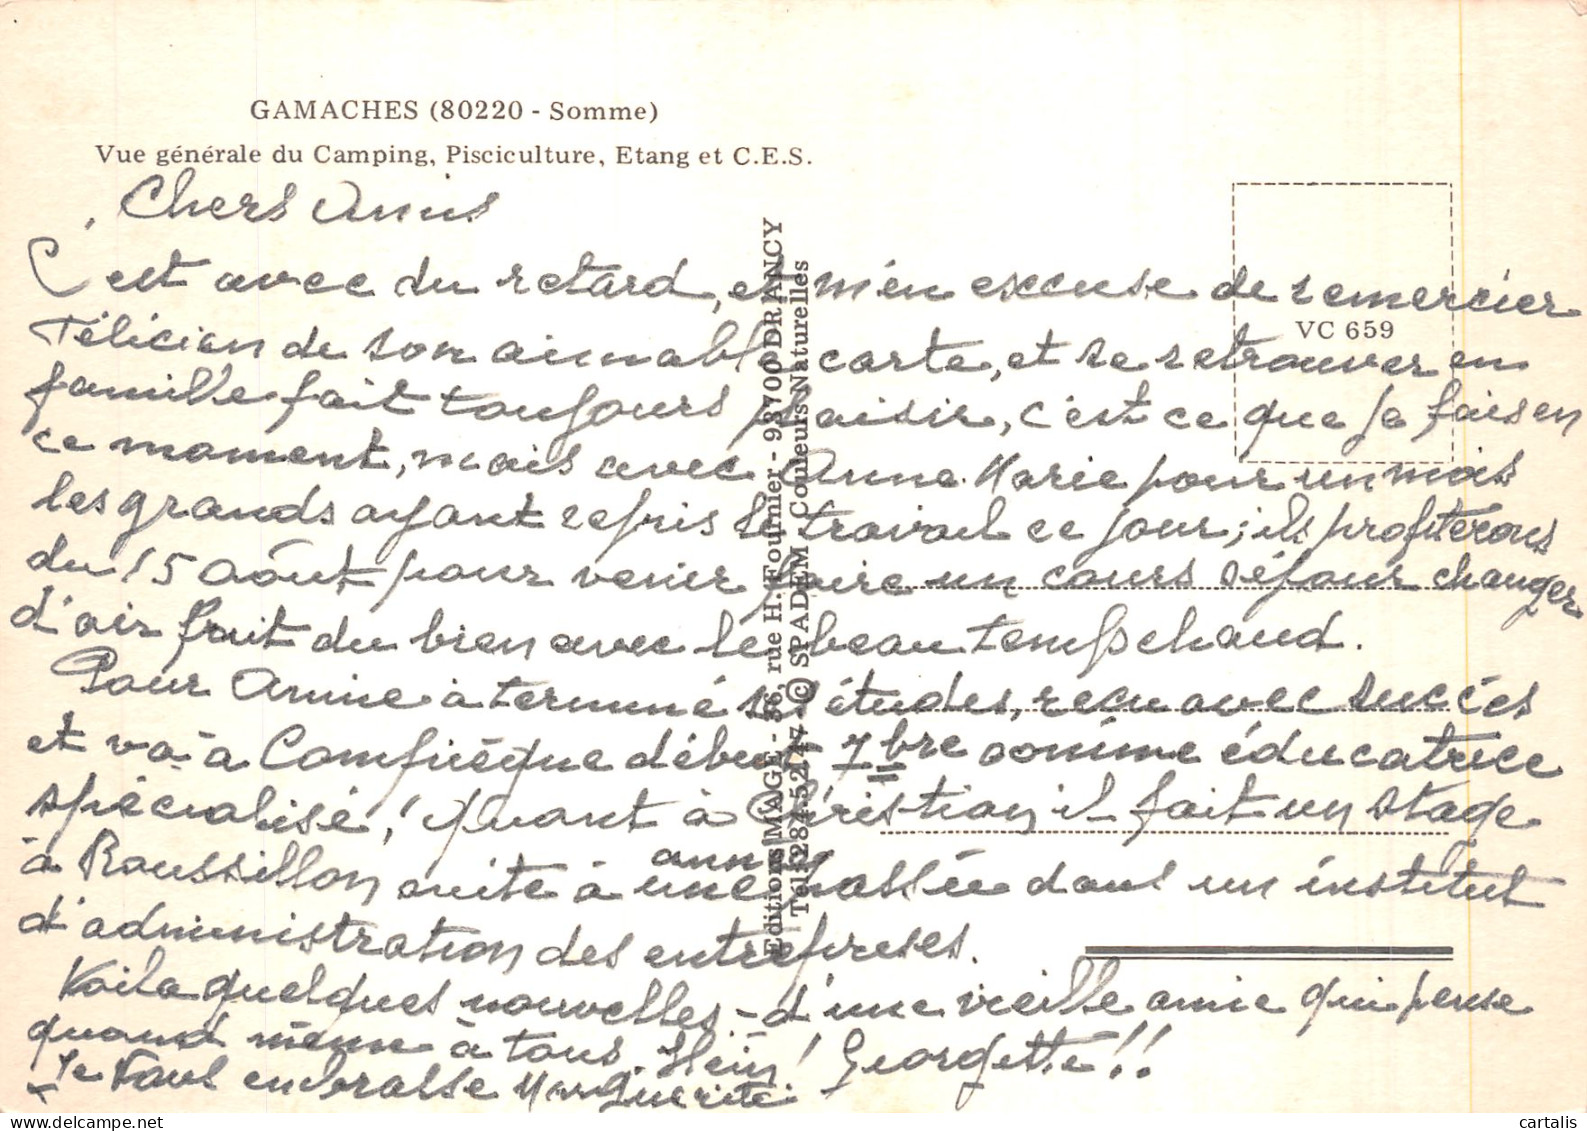 GAMACHES (80220 - Somme)
Vue générale du Camping, Pisciculture, Etang et C.E.S.
Chers Amis
C'est avec du retard, et m'en excuse de remercier
Félicien de son aimable carte, et se retrouver en
famille fait toujours plaisir, c'est ce que je fais en
ce moment, mais avec Anne Marie pour un mois
les grands ayant repris le travail ce jour; ils profiterons
du 15 Août pour venir faire un cours séjour changer
d'air fait du bien avec le beau temps chaud.
Pour Annie à terminé ses études, reçu avec succès
et va à Compiègne début 7bre comme éducatrice
spécialisé! Quant à Christian il fait un stage
à Roussillon suite à une année passée dans un institut
d'administration des entreprises.
Voila quelques nouvelles - d'une vieille amie qui pense
quand même à tous. Hein! Georgette!!
Je vous embrasse Marguerite.
Editions IMAGE - 56, rue H. Fournier - 93700 DRANCY
Tél. 284.52.47 - © SPADEM Couleurs Naturelles
VC 659
cartalis